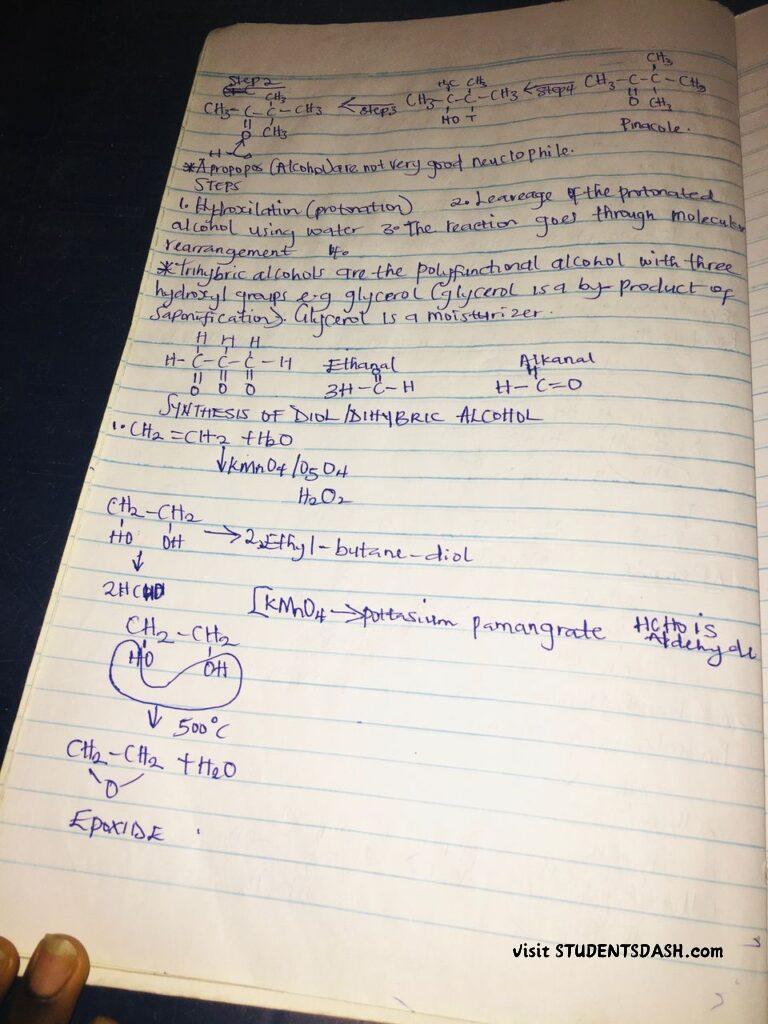 Step 2
CH3 H3C CH3 CH3
CH3-C-C-CH3 ← Step3 CH3-C-C-CH3 ← Step4 CH3-C-C-CH3
O CH3 HO O CH3
H Pinacole.
*Apropopos (Alcohol) are not very good neuclophile.
STEPS
1. Hydroxilation (protonation) 2. Leaveage of the protonated
alcohol using water 3. The reaction goes through molecular
rearrangement 4.
*Trihybric alcohols are the polyfunctional alcohol with three
hydroxyl groups e.g glycerol (glycerol is a by product of
saponification). Glycerol is a moisturizer.
H H H
H-C-C-C-H Ethanal Alkanal
O O O 3H-C-H H-C=O
SYNTHESIS OF DIOL/DIHYBRIC ALCOHOL
1. CH2=CH2 + H2O
↓ KMnO4/O5O4
H2O2
CH2-CH2
HO OH → 2,2Ethyl-butane-diol
↓
2HCHO
[KMnO4 → pottasium pamangrate HCHO is
Aldehyde
CH2-CH2
HO OH
↓ 500°C
CH2-CH2 + H2O
O
EPOXIDE
Visit STUDENTSDASH.com